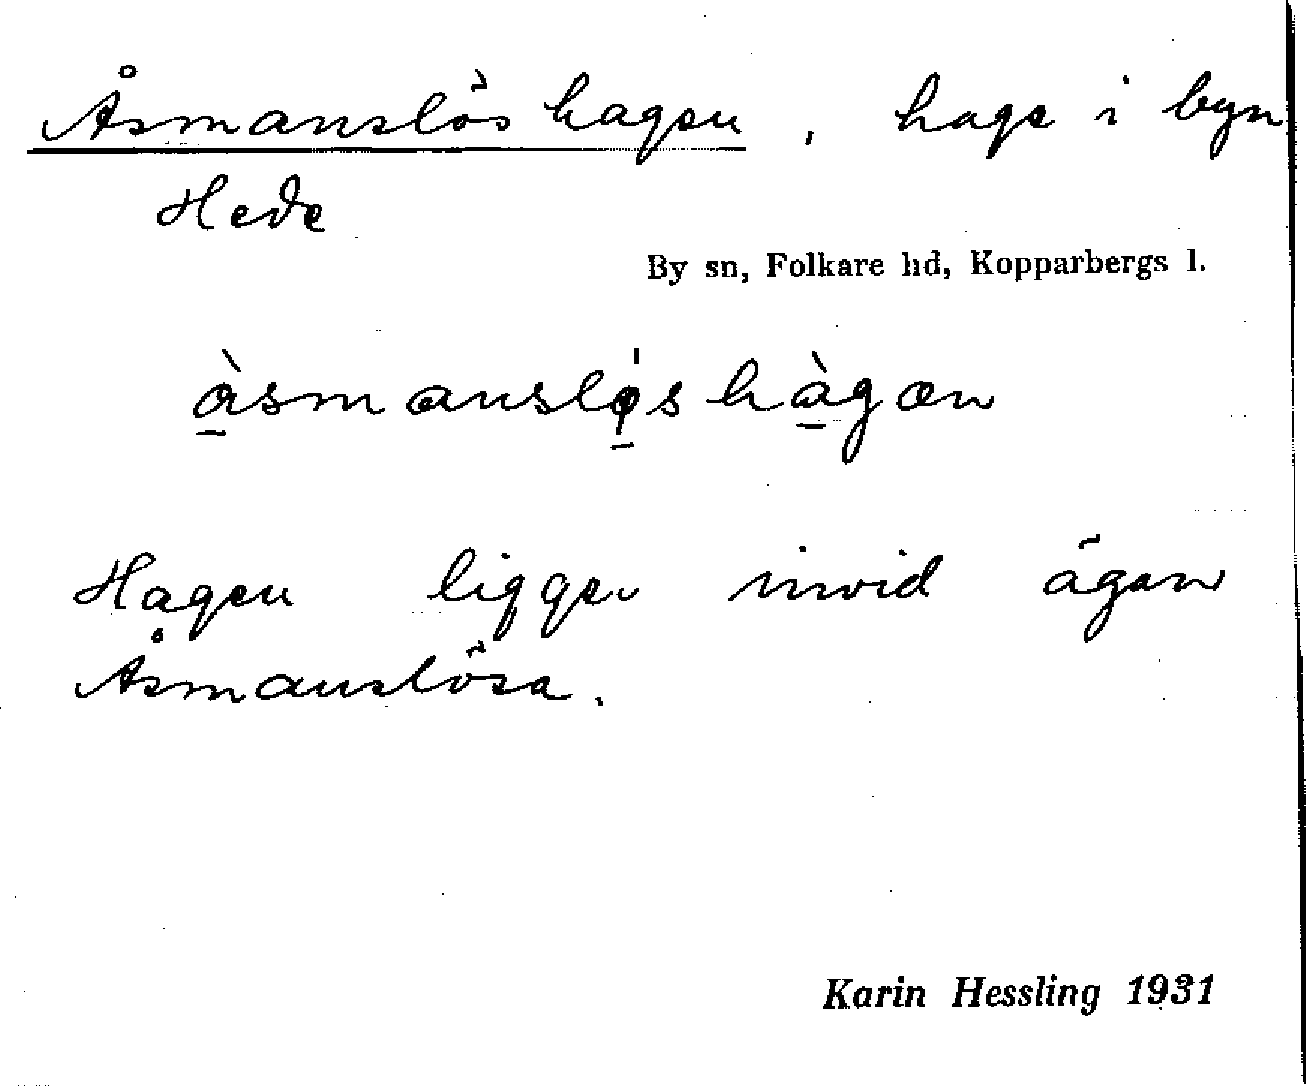 Åsmanslöshagen, hage i byn
Hede
By sn, Folkare hd, Kopparbergs l.
à̱smanslǿ̱shà̱gæn
Hagen ligger invid ägan
Åsmanslösa.
Karin Hessling 1931